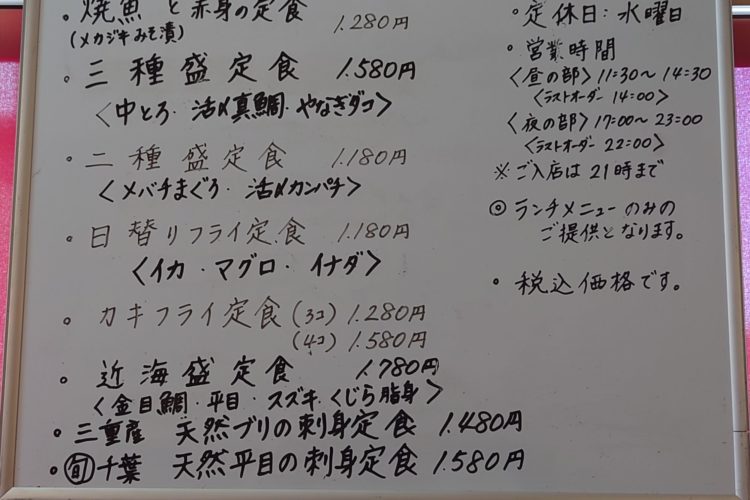 ・焼魚と赤身の定食 1.280円
(メカジキみそ漬)
・三種盛定食 1.580円
〈中とろ・活〆真鯛・やなぎダコ〉
・二種盛定食 1.180円
〈メバチまぐろ・活〆カンパチ〉
・日替りフライ定食 1.180円
〈イカ・マグロ・イナダ〉
・カキフライ定食 (3コ) 1.280円
(4コ) 1.580円
・近海盛定食 1.780円
〈金目鯛・平目・スズキ・くじら脂身〉
・三重産 天然ブリの刺身定食 1.480円
・旬千葉 天然平目の刺身定食 1.580円
・定休日:水曜日
・営業時間
〈昼の部〉11:30〜14:30
〈ラストオーダー 14:00〉
〈夜の部〉17:00〜23:00
〈ラストオーダー 22:00〉
※ご入店は21時まで
◎ランチメニューのみの
ご提供となります。
・税込価格です。